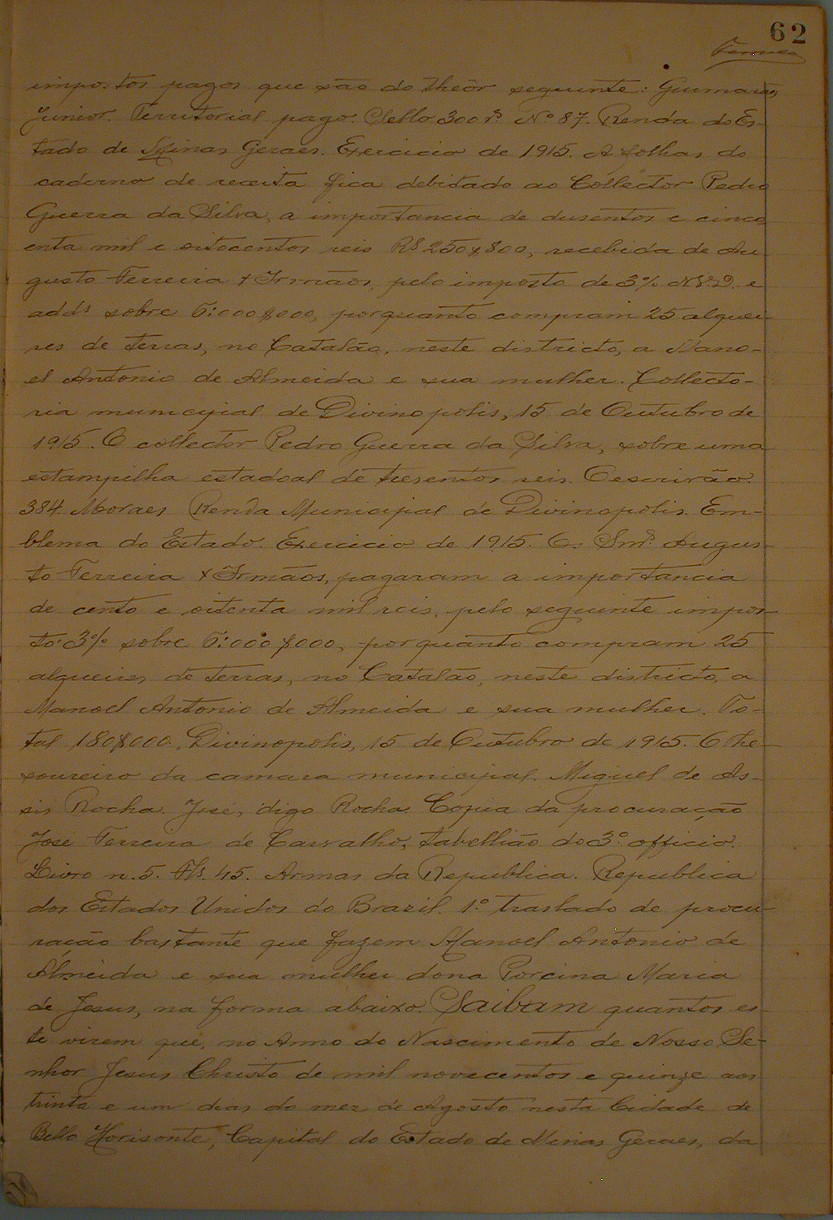 62
impostos pagos que são do theôr seguinte: Guimarães
Junior. Territorial pago. Sello 300 rs. Nº 87. Renda do Es-
tado de Minas Geraes. Exercicio de 1915. A folhas do
caderno de receita fica debitado ao Collector Pedro
Guerra da Silva, a importancia de dusentos e cinco
enta mil e oitocentos reis R$ 250$800, recebida de Au-
gusto Ferreira & Irmãos, pelo imposto de 3% e
add.s sobre 6:000$000, porquanto compram 25 alquei-
res de terras, no Catalão, neste districto, a Mano-
el Antonio de Almeida e sua mulher. Collecto-
ria municipal de Divinopolis, 15 de Outubro de
1915. O collector Pedro Guerra da Silva, sobre uma
estampilha estadoal de tresentos reis. O escrivão.
384. Moraes Renda Municipal de Divinopolis. Em-
blema do Estado. Exercicio de 1915. O. Snr. Augus-
to Ferreira & Irmãos, pagaram a importancia
de cento e oitenta mil reis, pelo seguinte impos-
to: 3% sobre 6:000$000, porquanto compram 25
alqueires de terras, no Catalão, neste districto, a
Manoel Antonio de Almeida e sua mulher. To-
tal 180$000. Divinopolis, 15 de Outubro de 1915. O the-
soureiro da camara municipal. Miguel de As-
sis Rocha. José, digo Rocha. Copia da procuração
José Ferreira de Carvalho, tabellião do 3º officio.
Livro n. 5. Fls. 45. Armas da Republica. Republica
dos Estados Unidos do Brazil. 1º traslado de procu-
ração bastante que fazem Manoel Antonio de
Almeida e sua mulher dona Porcina Maria
de Jesus, na forma abaixo. Saibam quantos es-
te virem que, no Anno do Nascimento de Nosso Se-
nhor Jesus Christo de mil novecentos e quinze aos
trinta e um dias do mez de Agosto nesta Cidade de
Bello Horisonte, Capital do Estado de Minas Geraes, da